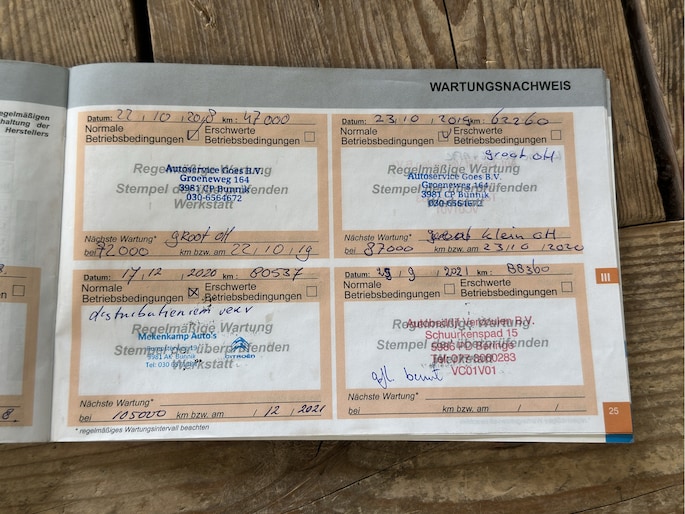 egelmäßigen
haltung der
Herstellers
WARTUNGSNACHWEIS
Datum: 22, 10, 2018 km: 47000
Normale Betriebsbedingungen Erschwerte Betriebsbedingungen
Regelmäßige Wartung
Autoservice Goes B.V.
Groeneweg 164
Stempel des überprüfenden
3981 CP Bunnik
Werkstatt
030-6564672
Nächste Wartung* groot OH
bei 72000 km bzw. am 22, 10, 19
Datum: 23, 10, 2019 km: 62260
Normale Betriebsbedingungen Erschwerte Betriebsbedingungen
groot OH
Regelmäßige Wartung
Autoservice Goes B.V.
Groeneweg 164
Stempel des überprüfenden
3981 CP Bunnik
Werkstatt
030-6564672
Nächste Wartung* klein OH
bei 87000 km bzw. am 23, 10, 2020
Datum: 17, 12, 2020 km: 80537
Normale Betriebsbedingungen Erschwerte Betriebsbedingungen
Regelmäßige Wartung
Mekenkamp Auto's
Stempel der überprüfenden
CITROËN
Werkstatt
Nächste Wartung*
bei 105000 km bzw. am , 12, 2021
* regelmäßiges Wartungsintervall beachten
Datum: , 9, 2021 km: 88360
Normale Betriebsbedingungen Erschwerte Betriebsbedingungen
Regelmäßige Wartung
Schuurkenspad 15
Stempel der überprüfenden
Werkstatt
VC01V01
Nächste Wartung*
bei km bzw. am / /
III
25
8.